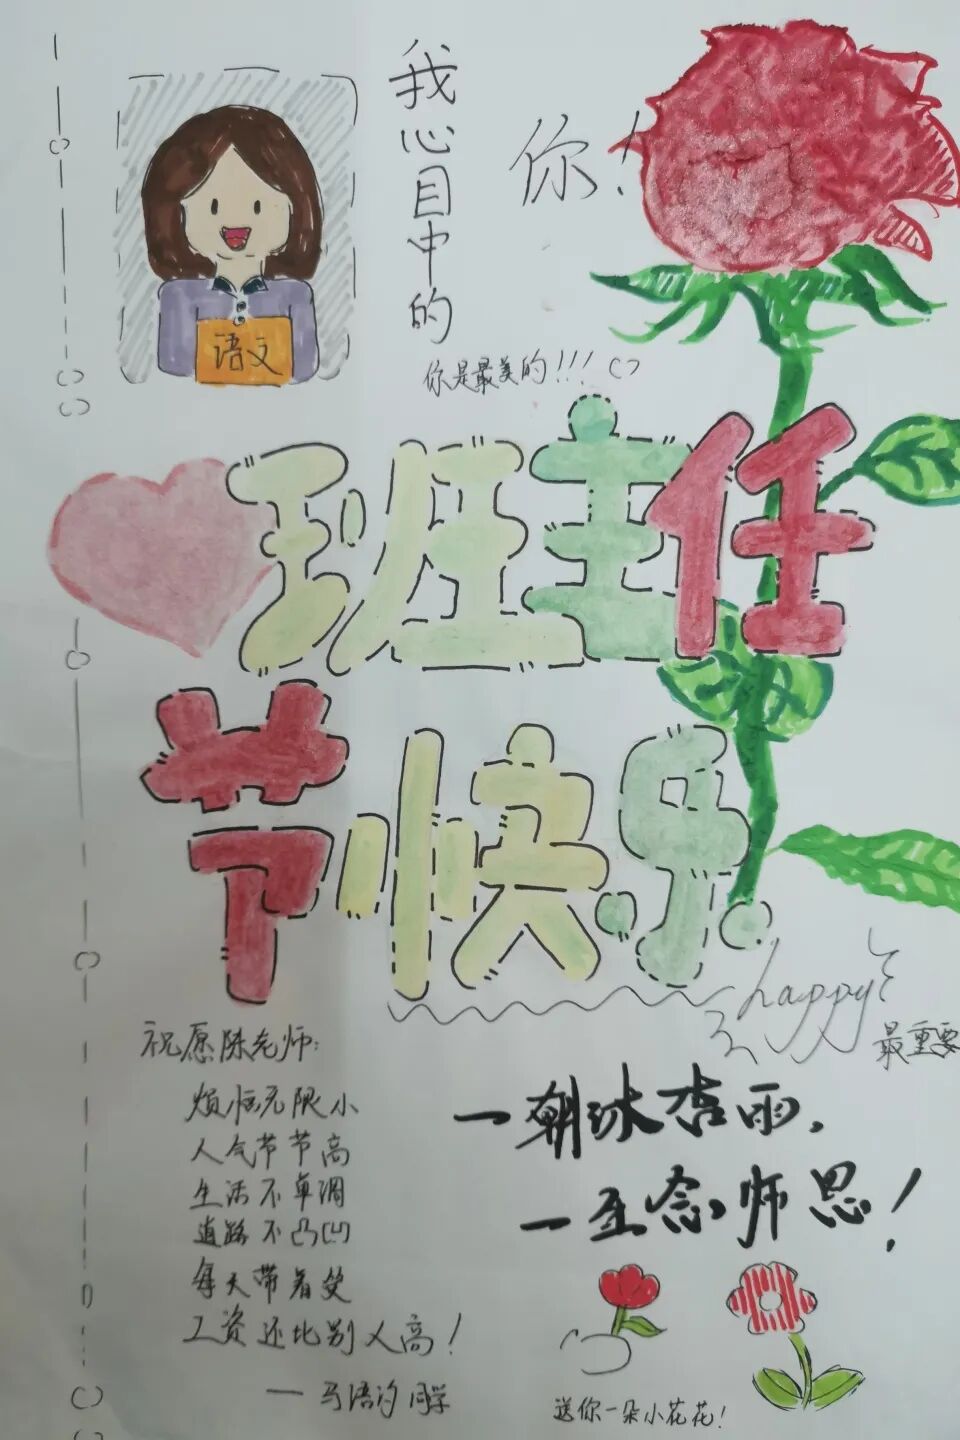 我心目中的
你!
语文
你是最美的!!!
班主任
节快乐
happy
最重要
祝愿陈老师:
烦恼无限小
人气节节高
生活不单调
道路不凸凹
每天带着笑
工资还比别人高!
一朝沐杏雨,
一生念师恩!
送你一朵小花花!